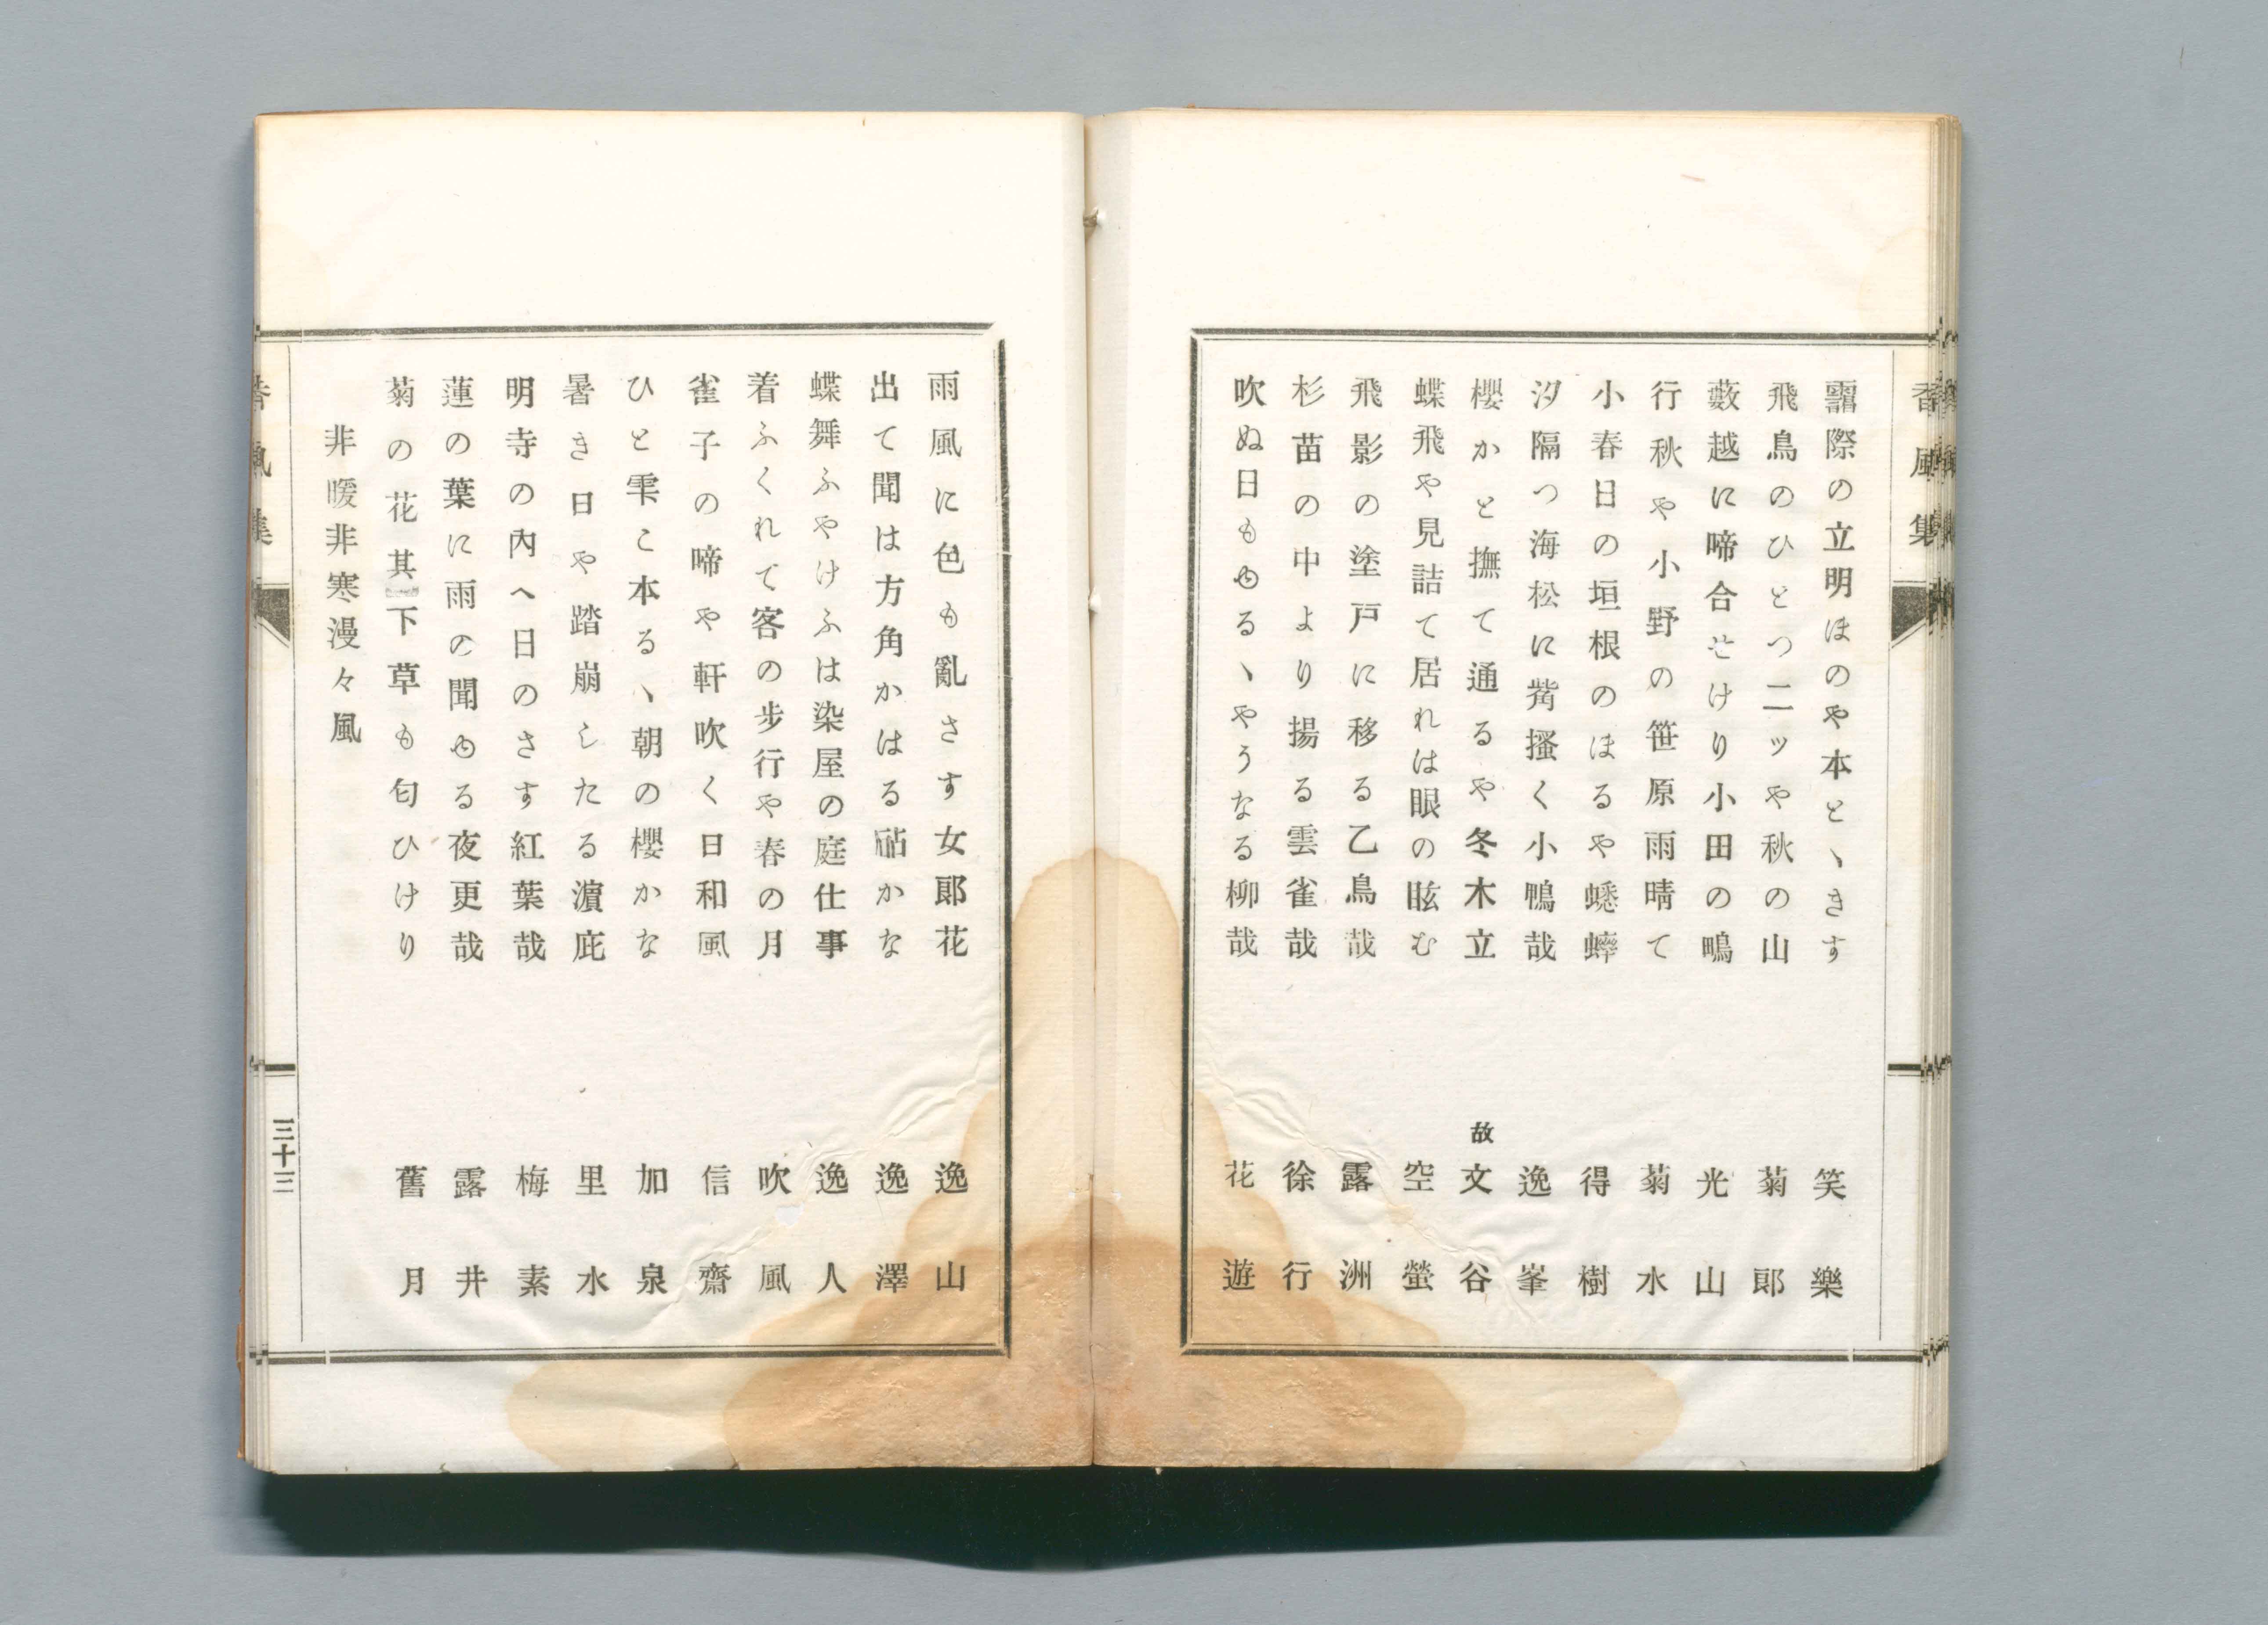 香風集
靄際の立明ほのや本とゝきす　笑樂
飛鳥のひとつ二ッや秋の山　菊郎
藪越に啼合せけり小田の鴫　光山
行秋や小野の笹原雨晴て　菊水
小春日の垣根のほるや蟋蟀　得樹
汐隔つ海松に觜搔く小鴨哉　逸峯
櫻かと撫て通るや冬木立　故文谷
蝶飛や見詰て居れは眼の眩む　空螢
飛影の塗戸に移る乙鳥哉　露洲
杉苗の中より揚る雲雀哉　徐行
吹ぬ日もゆるゝやうなる柳哉　花遊
雨風に色も亂さす女郎花　逸山
出て聞は方角かはる砧かな　逸澤
蝶舞ふやけふは染屋の庭仕事　逸人
着ふくれて客の步行や春の月　吹風
雀子の啼や軒吹く日和風　信齋
ひと雫こ本るゝ朝の櫻かな　加泉
暑き日や踏崩したる濵庇　里水
明寺の內へ日のさす紅葉哉　梅素
蓮の葉に雨の聞ゆる夜更哉　露井
菊の花其下草も匂ひけり　舊月
非暖非寒漫々風
香風集
三十三